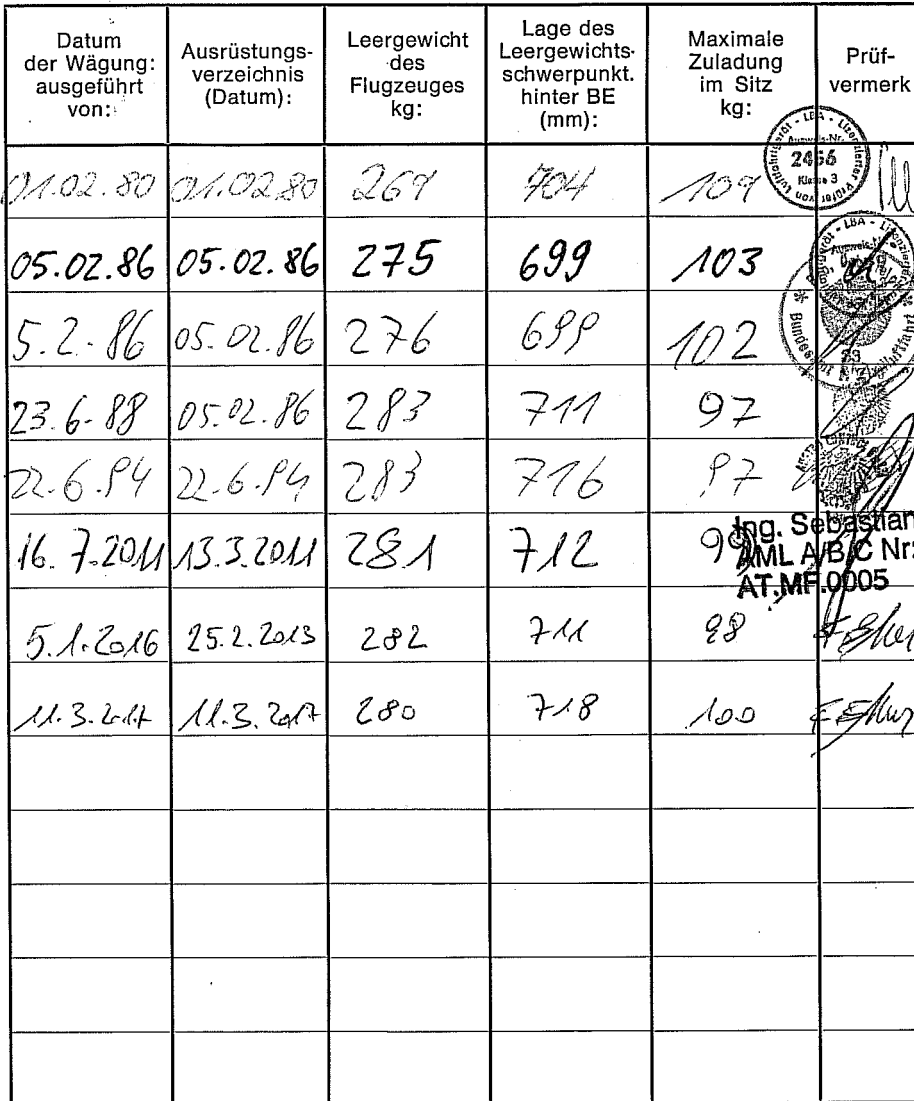 Datum der Wägung: ausgeführt von: Ausrüstungs-verzeichnis (Datum): Leergewicht des Flugzeuges kg: Lage des Leergewichts-schwerpunkt. hinter BE (mm): Maximale Zuladung im Sitz kg: Prüf-vermerk
01.02.80 01.02.80 269 704 109
2456
Klasse 3
05.02.86 05.02.86 275 699 103
5.2.86 05.02.86 276 699 102
23.6.88 05.02.86 283 711 97
22.6.94 22.6.94 283 716 97
16.7.2011 13.3.2011 281 712 99
Ing. Sebastian
AML A/B/C Nr:
AT.MF.0005
5.1.2016 25.2.2013 282 711 98
11.3.2017 11.3.2017 280 718 100